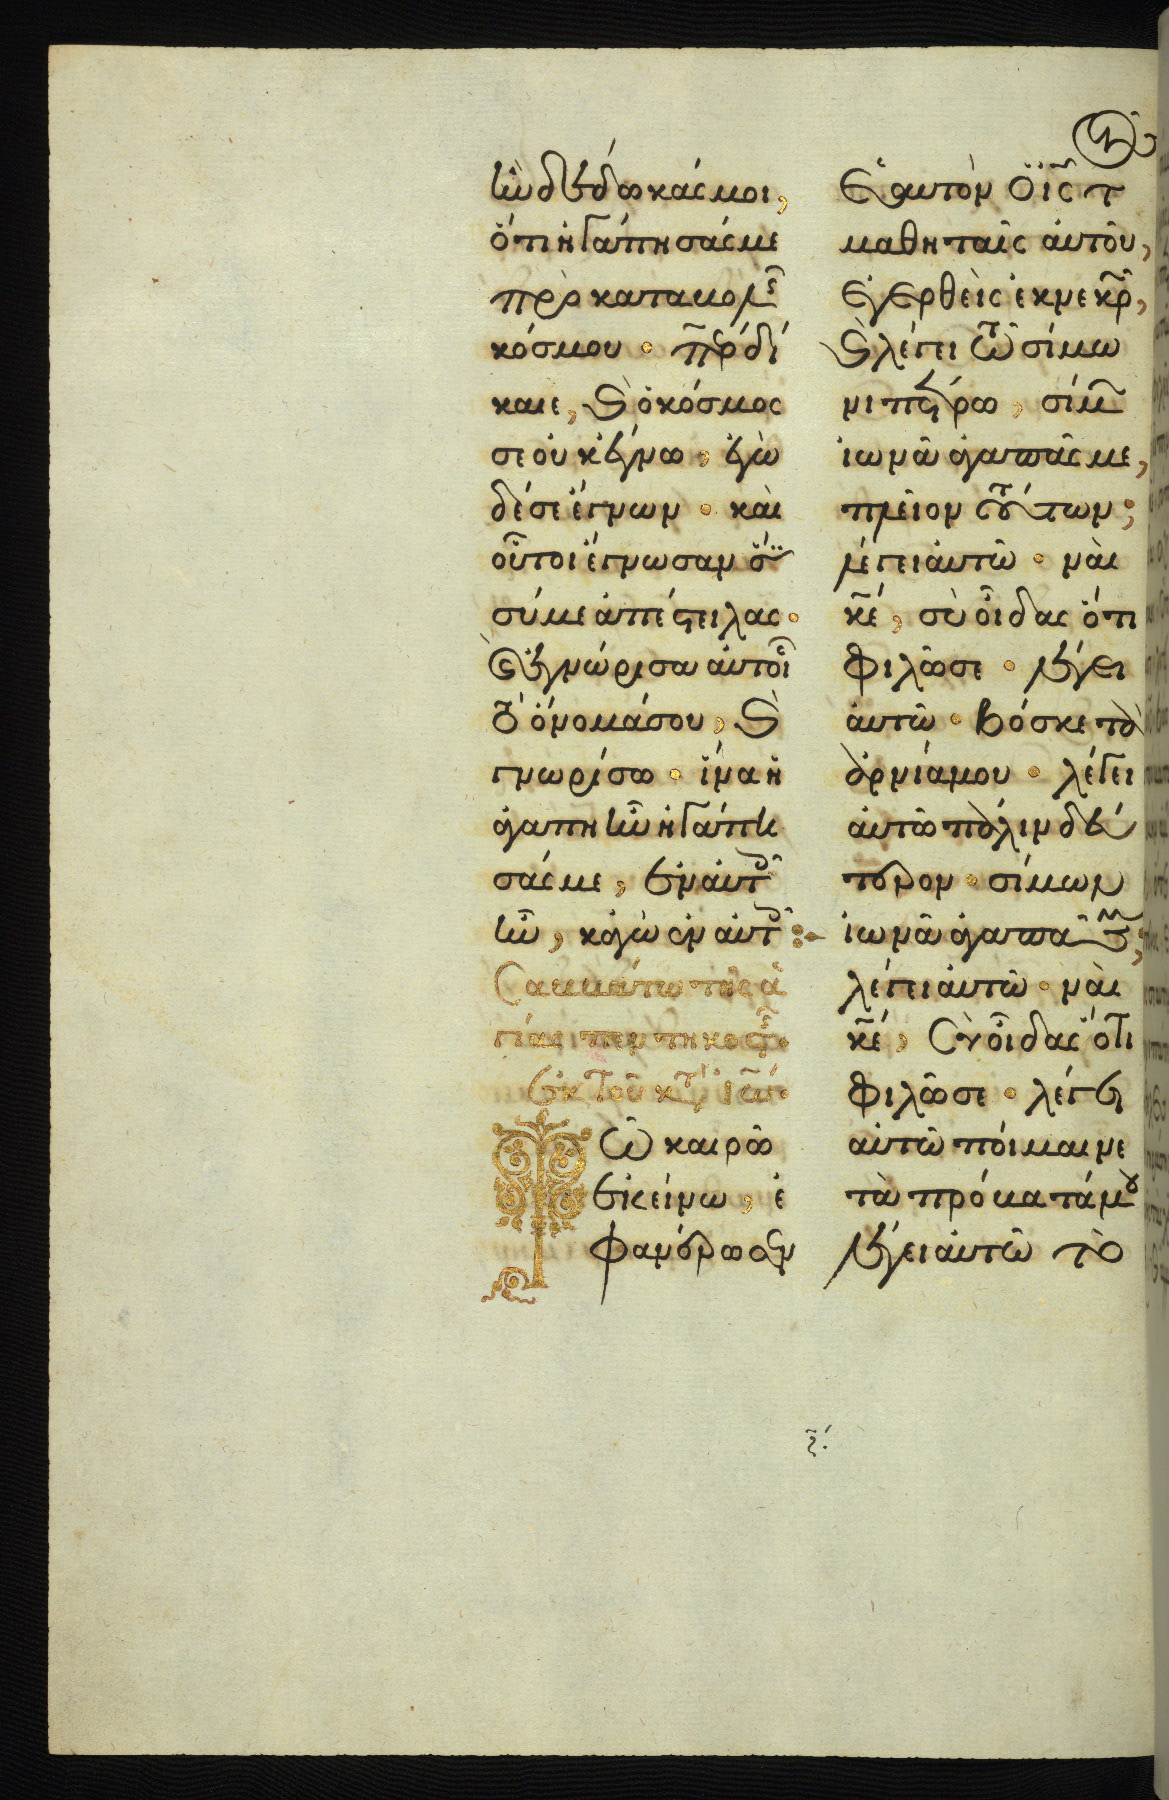 ἣν δέδωκάς μοι,
ὅτι ἠγάπησάς με
πρὸ καταβολῆς
κόσμου · περ δί
καιε, καὶ ὁ κόσμος
σε οὐκ ἔγνω, ἐγὼ
δέ σε ἔγνων · καὶ
οὗτοι ἔγνωσαν ὅτι
σύ με ἀπέστειλας ·
καὶ ἐγνώρισα αὐτοῖς
τὸ ὄνομά σου, καὶ
γνωρίσω · ἵνα ἡ
ἀγάπη ἣν ἠγάπη
σάς με, ἐν αὐτοῖς
ᾖ, κἀγὼ ἐν αὐτοῖς:
Σαββάτω τῆς ἁ
γίας πεντηκοστῆς·
ἐκ τοῦ κατ ἰω·
Τῶ καιρῶ
ἐκείνω, ἐ
φανέρωσεν
ἑαυτὸν ὁ ις τ
μαθηταῖς αὐτοῦ,
ἐγερθεὶς ἐκ νεκρῶ,
καὶ λέγει τῶ σίμω
νι πέτρω, σίμων
ἰωνᾶ ἀγαπᾶς με,
πλεῖον τούτων;
λέγει αὐτῶ · ναὶ
κε, σὺ οἶδας ὅτι
φιλῶ σε · λέγει
αὐτῶ · βόσκε τὰ
ἀρνία μου · λέγει
αὐτῶ πάλιν δεύ
τερον · σίμων
ἰωνᾶ ἀγαπᾶς με;
λέγει αὐτῶ · ναὶ
κε, σὺ οἶδας ὅτι
φιλῶ σε · λέγει
αὐτῶ ποίμαινε
τὰ πρόβατά μου
λέγει αὐτῶ τὸ
ξ.